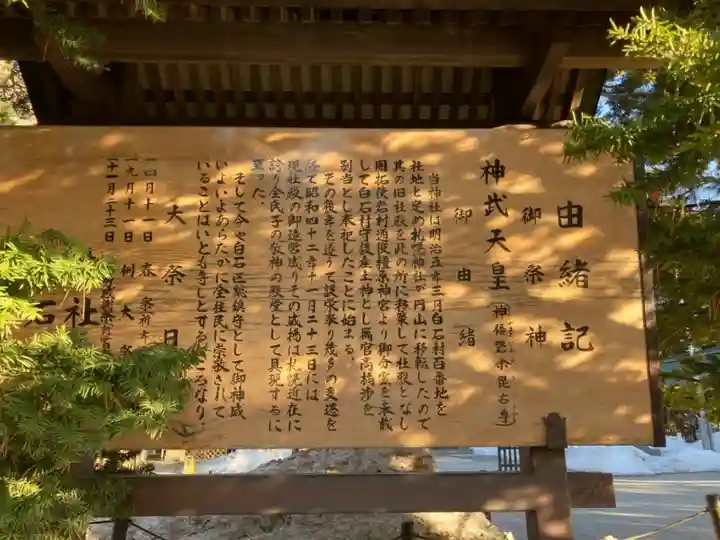 由緒記
御祭神
神武天皇
御由緒
当神社は明治五年三月白石村百番地を
社地と定め札幌神社が円山に移転したので
其の旧社殿を此の所に移築して社殿となし
開拓使岩村通俊橿原神宮より御分霊を奉戴
して白石村守護奉土神とし属官高橋渉を
別当とし奉祀したことに始まる。
その後年を追って護持奉り幾多の変遷を
経て昭和四十二年十一月二十三日には
現社殿の御造営成りその威揚は札幌近在に
誇り全氏子の敬神の殿堂として具現するに
至った。
そして今や白石区総鎮守として御神威
いよいよあらたかに全住民に崇敬されて
いることはいとも尊しとするところなり。
大祭日
四月十一日 春
九月十一日 例大
十一月二十三日
社
石